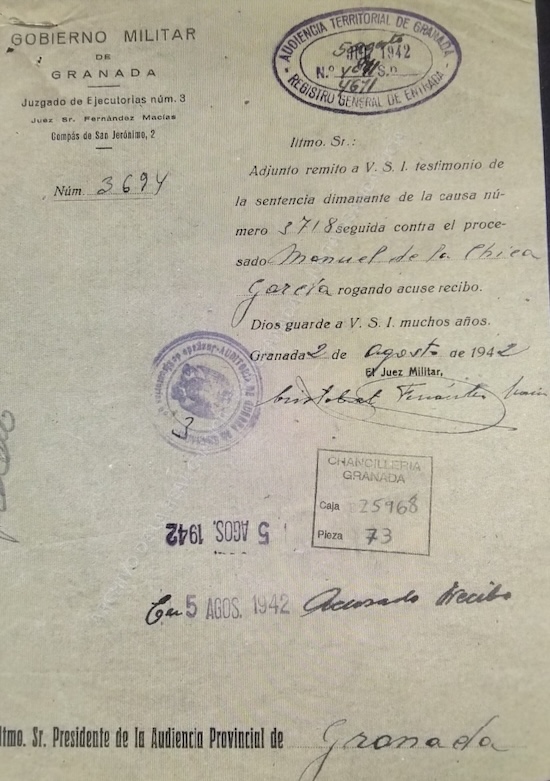 GOBIERNO MILITAR
DE
GRANADA
Juzgado de Ejecutorias núm. 3
Juez Sr. Fernández Macías
Compás de San Jerónimo, 2
Núm 3694
AUDIENCIA TERRITORIAL DE GRANADA
1942
N.º
4671
REGISTRO GENERAL DE ENTRADA
Iltmo. Sr.:
Adjunto remito a V. S. I. testimonio de
la sentencia dimanante de la causa nú-
mero 3718 seguida contra el proce-
sado Manuel de la Chica
García rogando acuse recibo.
Dios guarde a V. S. I. muchos años.
Granada 2 de agosto de 1942
El Juez Militar,
Cristobal Fernández
3
CHANCILLERIA
GRANADA
Caja 25968
Pieza 73
5 AGOS. 1942
En 5 AGOS. 1942 Acusado Recibo
Iltmo. Sr. Presidente de la Audiencia Provincial de Granada